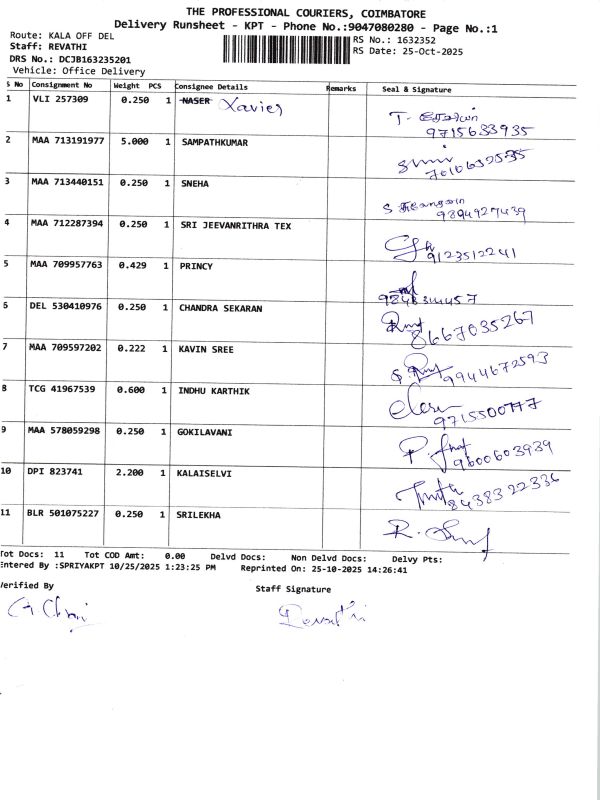 THE PROFESSIONAL COURIERS, COIMBATORE
Delivery Runsheet - KPT - Phone No.:9047080280 - Page No.:1
Route: KALA OFF DEL
RS No.: 1632352
Staff: REVATHI
RS Date: 25-Oct-2025
DRS No.: DCJB163235201
Vehicle: Office Delivery
S No Consignment No Weight PCS Consignee Details Remarks Seal & Signature
1 VLI 257309 0.250 1 NASER Xavier T.
9715633935
2 MAA 713191977 5.000 1 SAMPATHKUMAR
3 MAA 713440151 0.250 1 SNEHA S
9894927439
4 MAA 712287394 0.250 1 SRI JEEVANRITHRA TEX
9123512241
5 MAA 709957763 0.429 1 PRINCY
6 DEL 530410976 0.250 1 CHANDRA SEKARAN
8667035267
7 MAA 709597202 0.222 1 KAVIN SREE
9944672593
8 TCG 41967539 0.600 1 INDHU KARTHIK
9 MAA 578059298 0.250 1 GOKILAVANI
9600603939
10 DPI 823741 2.200 1 KALAISELVI
8438322336
11 BLR 501075227 0.250 1 SRILEKHA R.
Tot Docs: 11 Tot COD Amt: 0.00 Delvd Docs: Non Delvd Docs: Delvy Pts:
Entered By :SPRIYAKPT 10/25/2025 1:23:25 PM Reprinted On: 25-10-2025 14:26:41
Verified By
Staff Signature
Revathi